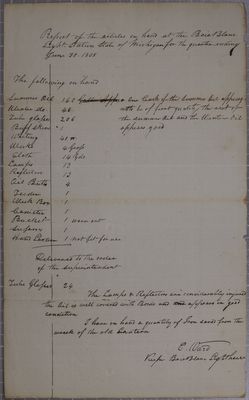 Report of the articles on hand at the Bois Blanc
Light Station State of Michigan for the quarter ending
June 30
The following on hand
Summer Oil 140
one Cask of the Summer Oil appears
Winter do
Tube glasses 206
the Summer Oil and the Winter Oil
appears good
Buff Skins
Whiting
Wicks 4
Cloth 14 yds
Lamps 13
Reflectors 13
Oil Butts 4
Feeder 1
Wick Box 1
Canister 1
Bucket 1 worn out
Scissors 1
Hand Lantern 1 not fit for use
Delivered to the order
of the Superintendent
Tube Glasses 24
The Lamps & Reflectors are considerably impaired
the Oil is well covered with and appears in good
condition
I have on hand a quantity of Iron saved from the
wreck of the old Lantern
E. Ward
Keeper Bois Blanc Light house